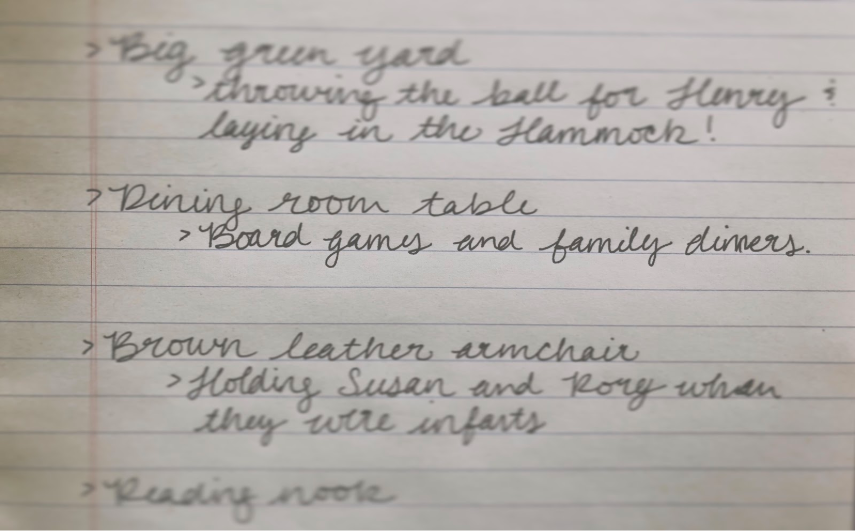 > Big green yard
> throwing the ball for Henry &
laying in the Hammock!
> Dining room table
> Board games and family dinners.
> Brown leather armchair
> Holding Susan and Rory when
they were infants
> Reading nook